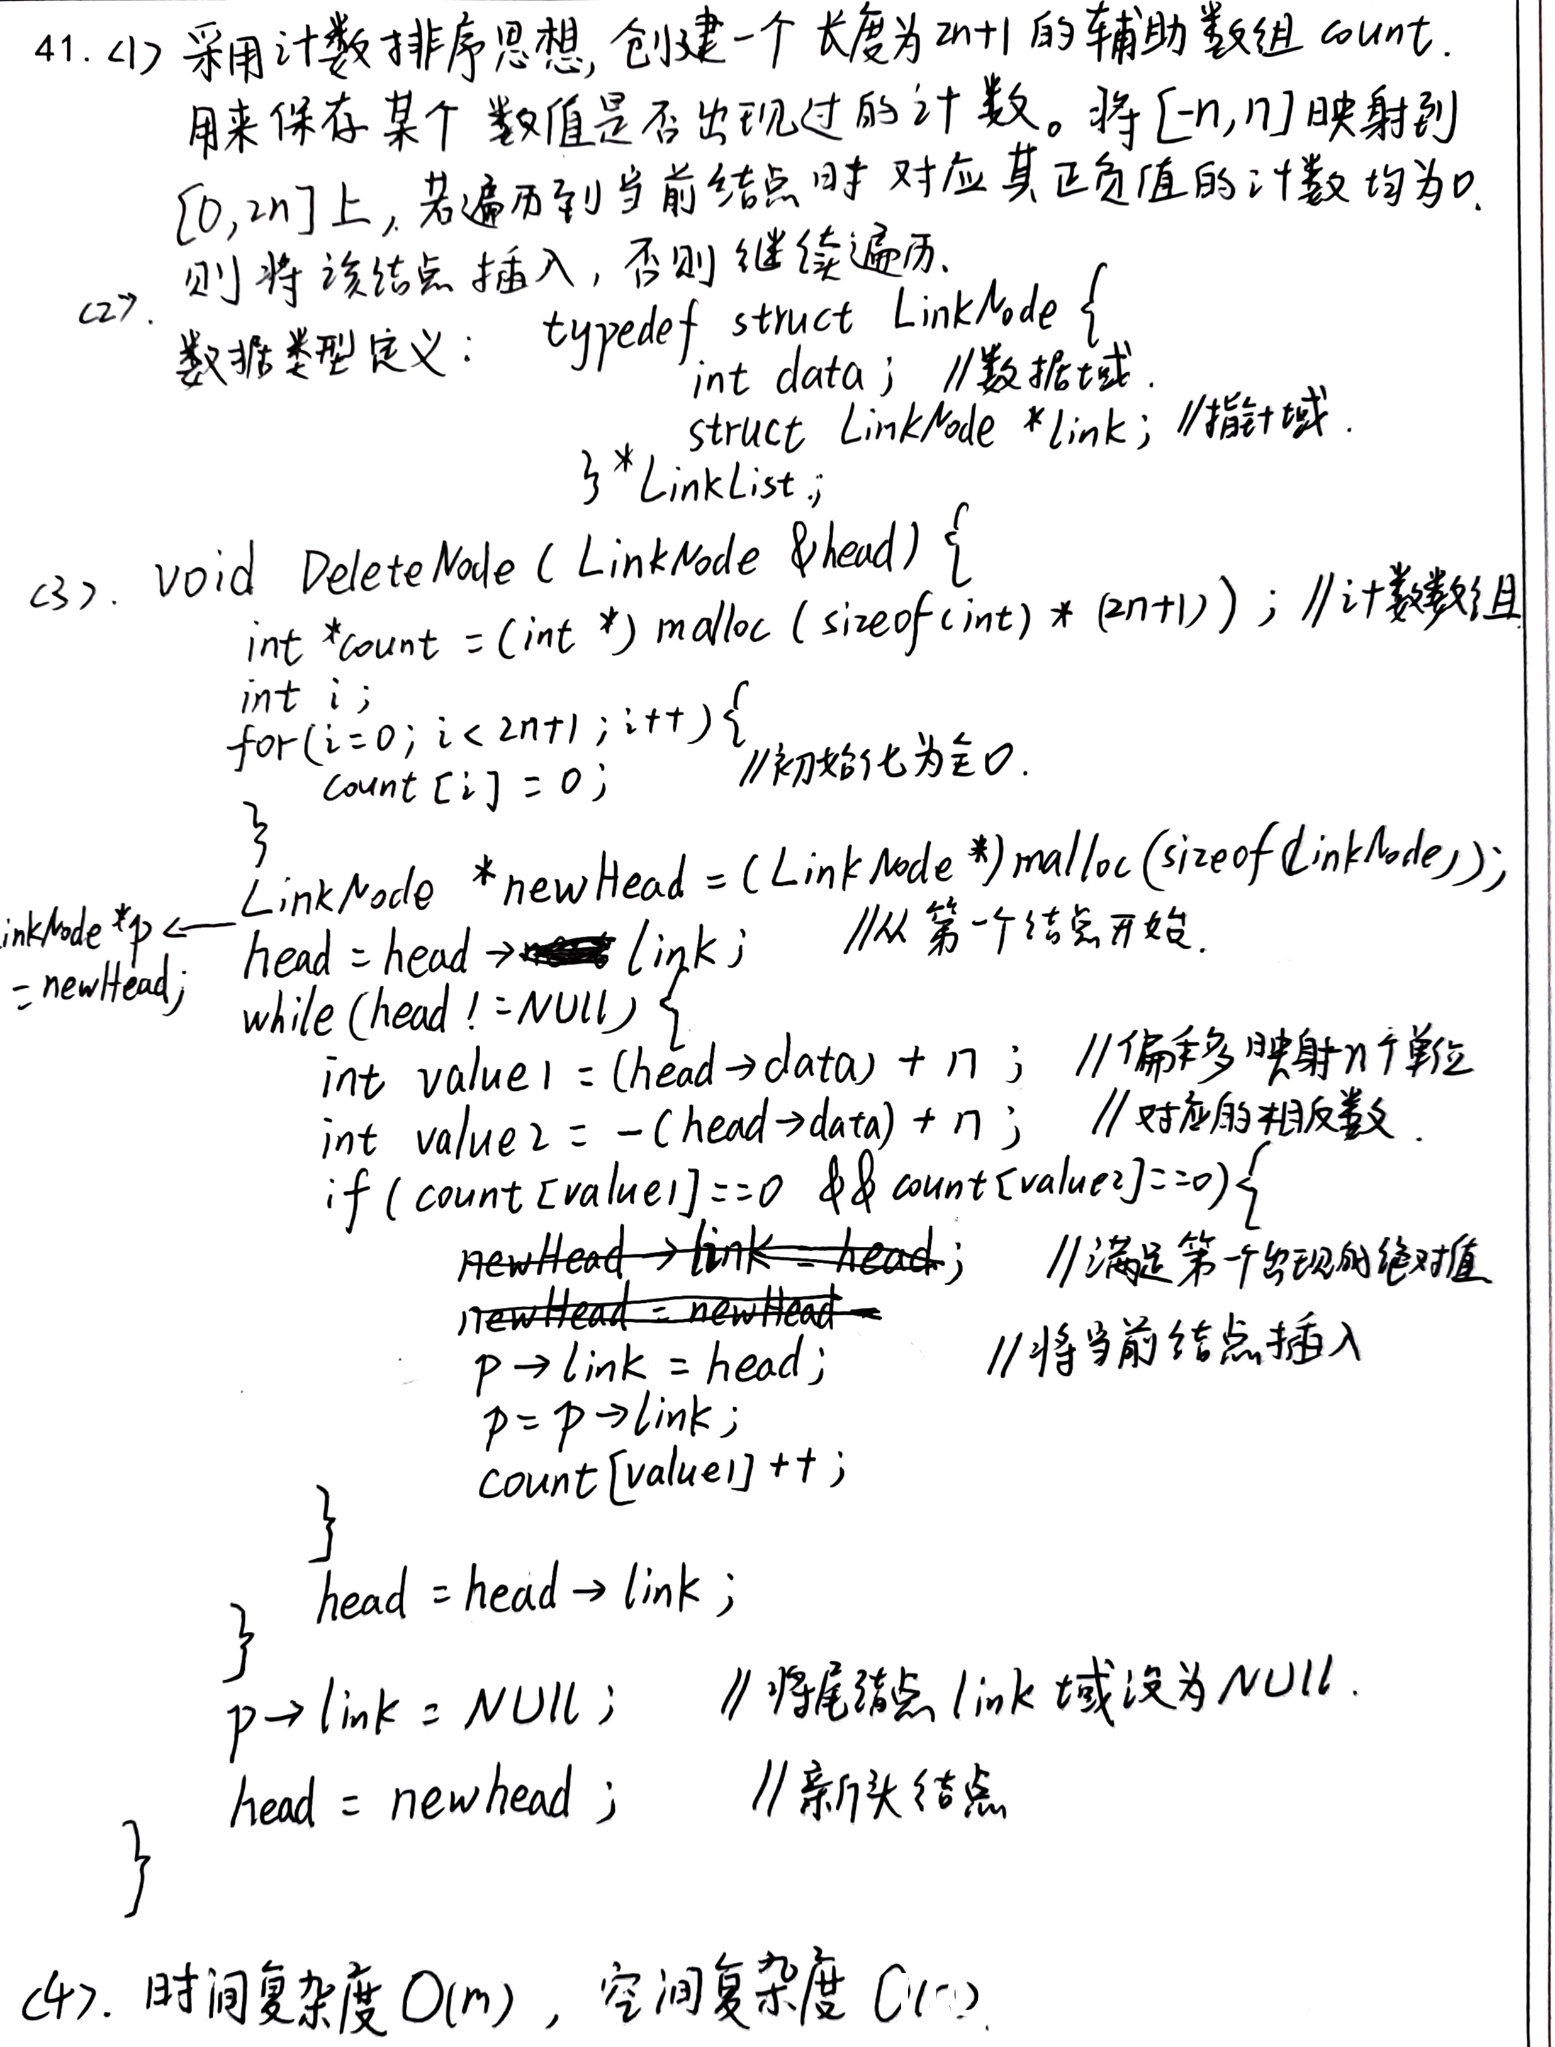 41. <1> 采用计数排序思想, 创建一个 长度为 2n+1 的辅助数组 count.
用来保存某个数值是否出现过的计数。将[-n,n]映射到
[0,2n]上, 若遍历到当前结点时 对应其正负值的计数均为0.
则将该结点插入, 否则继续遍历.
<2>. 数据类型定义: typedef struct LinkNode {
int data; //数据域.
struct LinkNode *link; //指针域.
}*LinkList;
<3>. void DeleteNode ( LinkNode &head) {
int *count = (int *) malloc ( sizeof(int) * (2n+1) ) ; //计数数组
int i;
for(i=0; i< 2n+1 ; i++) {
count [i] = 0; //初始化为全0.
}
LinkNode *newHead = (LinkNode *) malloc (sizeof(LinkNode));
inkNode *p ←
= newHead;
head = head → link; //从第一个结点开始.
while (head != NUll) {
int value1 = (head→data) + n ; //偏移映射n个单位
int value2 = -(head→data) + n ; //对应的相反数.
if ( count [value1]==0 && count[value2]==0) {
newHead → link = head; //满足第一个出现的绝对值
newHead = newHead
p → link = head; //将当前结点插入
p = p → link;
count [value1] ++;
}
head = head → link ;
}
p → link = NUll ; //将尾结点 link 域设为NUll.
head = newhead ; //新头结点
}
<4>. 时间复杂度 O(m) , 空间复杂度